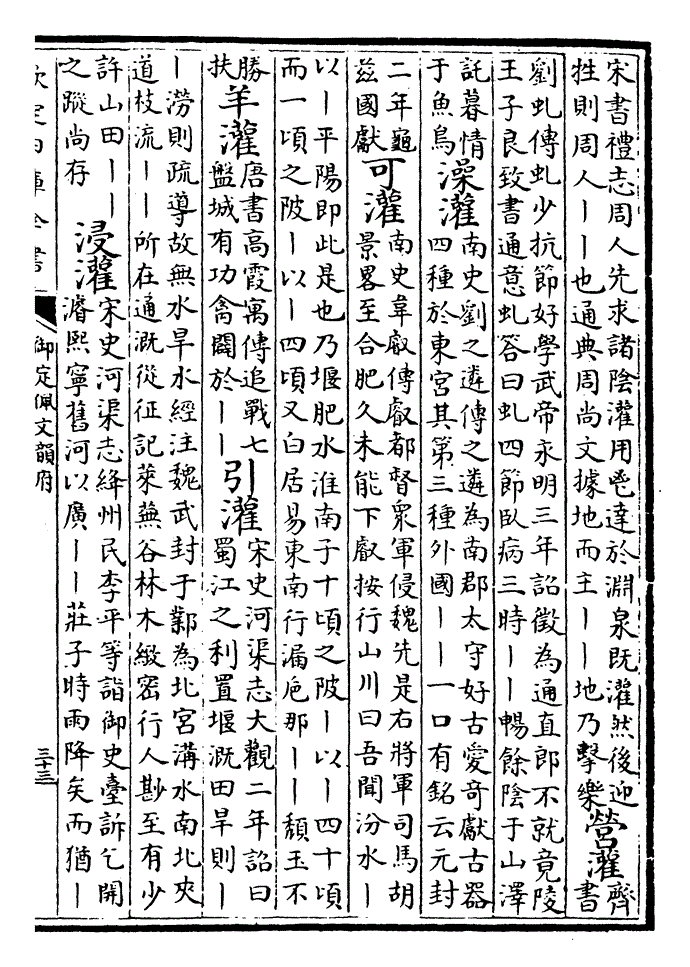 宋書禮志周人先求諸陰灌用鬯達於淵泉既灌然後迎
牲則周人丨丨也通典周尚文據地而主丨丨地乃擊樂
營灌
齊
書
劉虬傳虬少抗節好學武帝永明三年詔徵為通直郎不就竟陵
王子良致書通意虬答曰虬四節臥病三時丨丨暢餘陰于山澤
託暮情
于魚鳥
澡灌
南史劉之遴傳之遴為南郡太守好古愛奇獻古器
四種於東宮其第三種外國丨丨一口有銘云元封
二年龜
茲國獻
可灌
南史韋叡傳叡都督眾軍侵魏先是右將軍司馬胡
景畧至合肥久未能下叡按行山川曰吾聞汾水丨
以丨平陽即此是也乃堰肥水淮南子十頃之陂丨以丨四十頃
而一頃之陂丨以丨四頃又白居易東南行漏巵那丨丨頹玉不
勝
扶
羊灌
唐書高霞寓傳追戰七
盤城有功禽闢於丨丨
引灌
宋史河渠志大觀二年詔曰
蜀江之利置堰溉田旱則丨
丨澇則疏導故無水旱水經注魏武封于鄴為北宮溝水南北夾
道枝流丨丨所在通溉從征記萊蕪谷林木緻密行人尠至有少
許山田丨丨
之蹤尚存
浸灌
宋史河渠志絳州民李平等詣御史臺訴乞開
濬熙寧舊河以廣丨丨莊子時雨降矣而猶丨
欽定四庫全書
御定佩文韻府
三十三